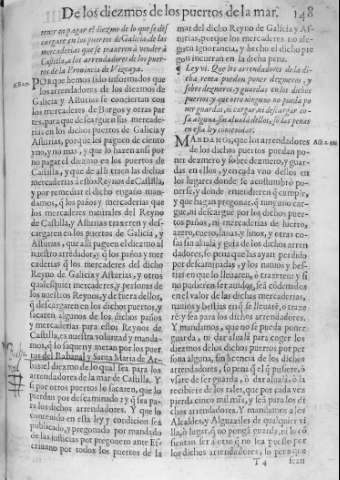 De los diezmos de los puertos de la mar. 148
nen a pagar el diezmo de lo que se descargare
en los puertos de Galicia, de las
mercaderias que se truxeren à vender à
Castilla, a los arrendadores de los puertos
de la Provincia de Vizcaya.
POrque hemos sido informados que
los arrendadores de los diezmos de
Galicia y Asturias se conciertan con
los mercaderes de Burgos y otras partes,
para que descarguen sus mercaderias
en los dichos puertos de Galicia y
Asturias, porque les paguen de ciento
uno, y no mas, y que lo hazen assi por
no pagar el diezmo en los puertos de
Castilla, y que de alli traen las dichas
mercaderias a estos Reynos de Castilla,
y por remediar el dicho engaño mandamos,
q̃ los paños y mercaderias que
los mercaderes naturales del Reyno
de Castilla, y Asturias traxeren y descargaren
en los puertos de Galicia, y
Asturias, que alli paguen el diezmo al
nuestro arrendador: q̃ los paños y mercaderias
q̃ los mercaderes del dicho
Reyno de Galicia y Asturias, y otros
qualesquier mercaderes, y personas de
los nuestros Reynos, y de fuera dellos,
q̃ descargaren en los dichos puertos, y
sacaren algunos de los dichos paños
y mercaderias para estos Reynos de
Castilla, es nuestra voluntad y mandamos,
q̃ lo saquen y metan por los puertos
del Rabanal, y Santa Maria de Arvas:
el diezmo de lo qual sea para los
arrendadores de la mar de Castilla. Y
si por otros puertos lo sacaren, que lo
pierdan por descaminado y q̃ sea para
los dichos arrendadores. Y que lo
contenido en esta ley y condicion sea
publicado, y pregonado por mandado
de las justicias por pregonero ante Escrivano
por todos los puertos de la
mar del dicho Reyno de Galicia y Asturias,
porque los mercaderes no aleguen
ignorancia, y hecho el dicho pregon
incurran en la dicha pena.
¶ Ley vj. Que los arrendadores de la dicha
renta pueden poner dezmeros, y
sobredezmeros, y guardas en los dichos
puertos y que otro ninguno no pueda poner
guardas, ni cargar, ni descargar cosa
alguna sin alvala dellos, so las penas
en esta ley contenidas.
MAndamos, que los arrendadores
de los dichos puertos puedan poner
dezmero y sobre dezmero, y guardas
en ellos, y en cada uno dellos en
los lugares donde se acostumbrò ponerse,
y donde entendieren q̃ cumple,
y que hagan pregonar, q̃ ninguno cargue,
ni descargue por los dichos puertos
paños, ni mercaderias de hierro,
azero, mercaduria, y linos, y otras cosas
sin alvala y guia de los dichos arrendadores,
so pena que las ayan perdido
por descaminadas, y los navios y bestias
en que lo llevaren, ò traxeren: y si
no pudieren ser avidos, seã cõdenados
en el valor de las dichas mercaderias,
navios y bestias en q̃ se llevarẽ, ò traxerẽ:
y sea para los dichos arrendadores.
Y mandamos, que no se pueda poner
guarda, ni dar alvala para coger los
diezmos de los dichos puertos por persona
alguna, sin licencia de los dichos
arrendadores, so pena q̃ el q̃ pusiere, ò
usare de ser guarda, ò dar alvala, ò la
recibiere de los tales, que por cada vez
pierda cinco mil mrs, y sea para los dichos
arrendadores. Y mandamos a los
Alcaldes, y Alguaziles de qualquier villa,
ò lugar, q̃ no pongã guarda, ni lo consientan
ser à otro q̃ no sea puesto por
los dichos arrendadores, so pena que
T 4